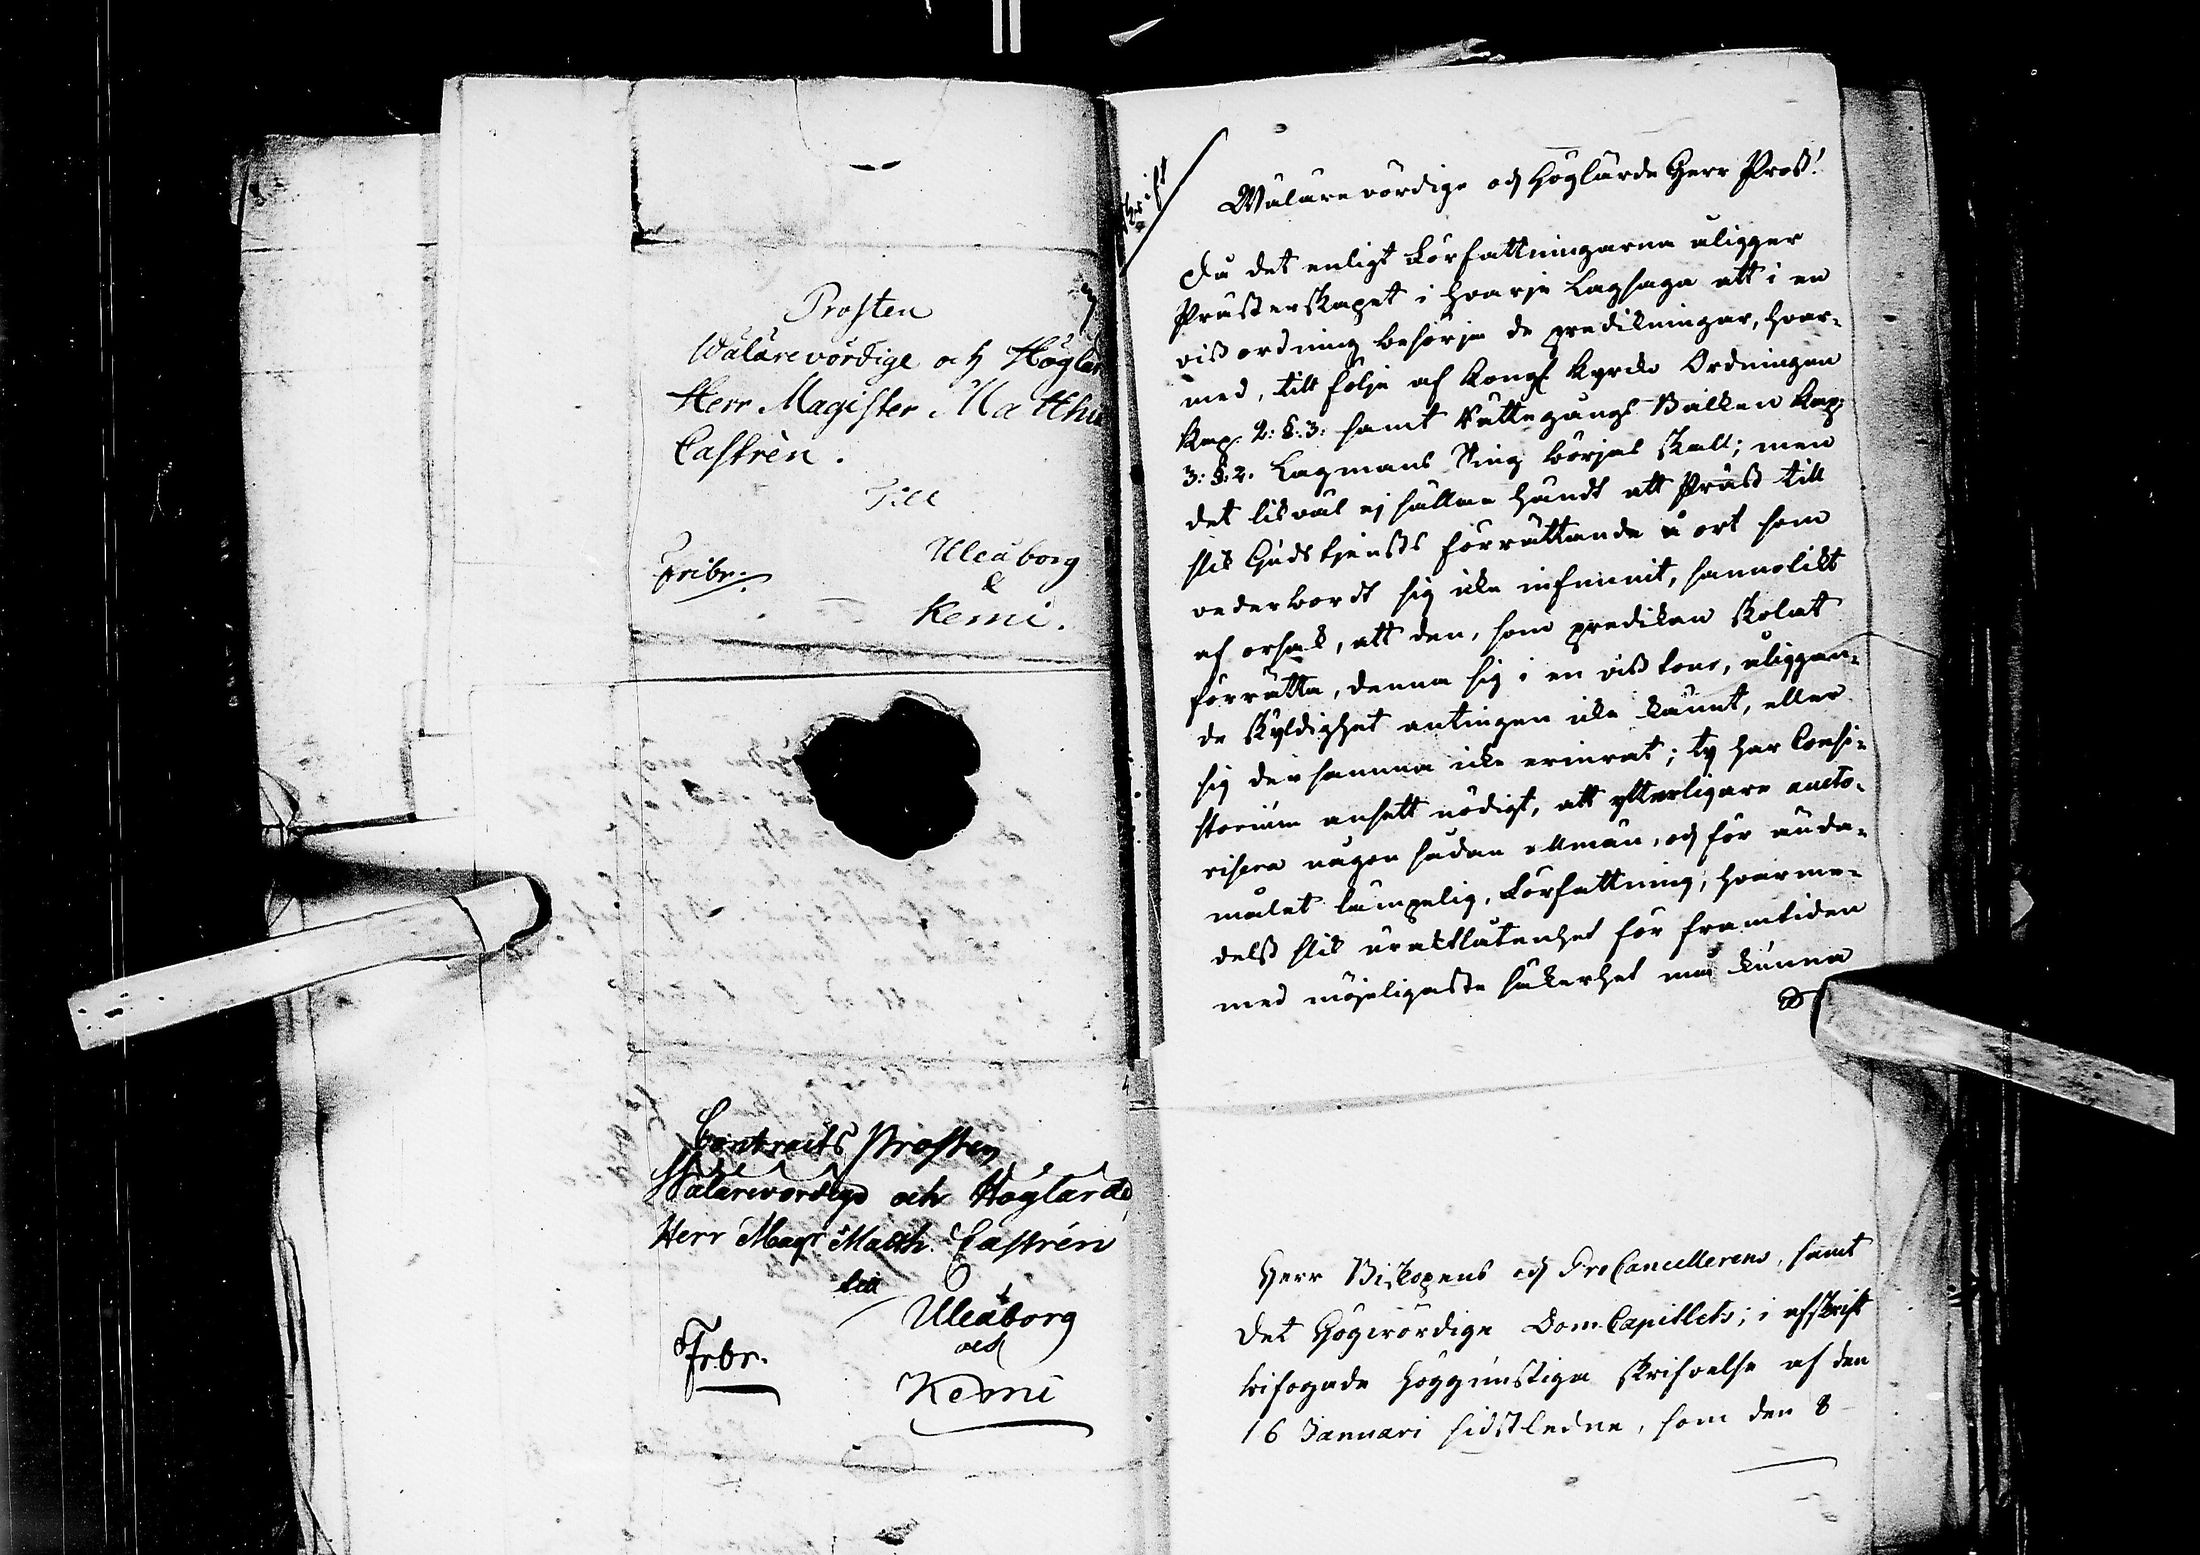 Prosten
Wälärevördige och Höglär
Herr Magister Matthi
Castrèn.
Till
Uleåborg
&
Fribr.
Kemi.
Contracts Prosten
Wälärevördige och Höglärde
Herr Magr Matth. Castrén
till
Uleåborg
och
Frbr.
Kemi
Wälärevördige och Höglärde Herr Prost!
Då det enligt Författningarna åligger
Prästerskapet i hvarje Lagsaga att i en
viss ordning besörja de predikningar, hvar-
med, till följe af Kongl Kyrko Ordningen
Kap. 2: §. 3: samt Rättegångs Balken Kap:
3: §: 2. Lagmans Ting börjas skall; men
det likväl ej sällan händt att Präst till
slik Gudstjensts förrättande å ort som
vederbordt sig icke infunnit, sannolikt
af orsak, att den, som predikan skolat
förrätta, denna sig i en viss tour, åliggan-
de skyldighet antingen icke känt, eller
sig densamma icke erinrat; ty har Consi-
storium ansett nödigt, att ytterligare aucto-
risera någon sådan allmän, och för ända-
målet lämpelig, Författning, hvarme-
delst slik uraktlåtenhet för framtiden
med möjeligaste säkerhet må kunna
Herr Biskopens och ProCancellerens, samt
Det Högvördige Dom-Capitlets; i afskrift
bifogade höggunstiga skrifvelse af den
16 Januari sidstledne, som den 8